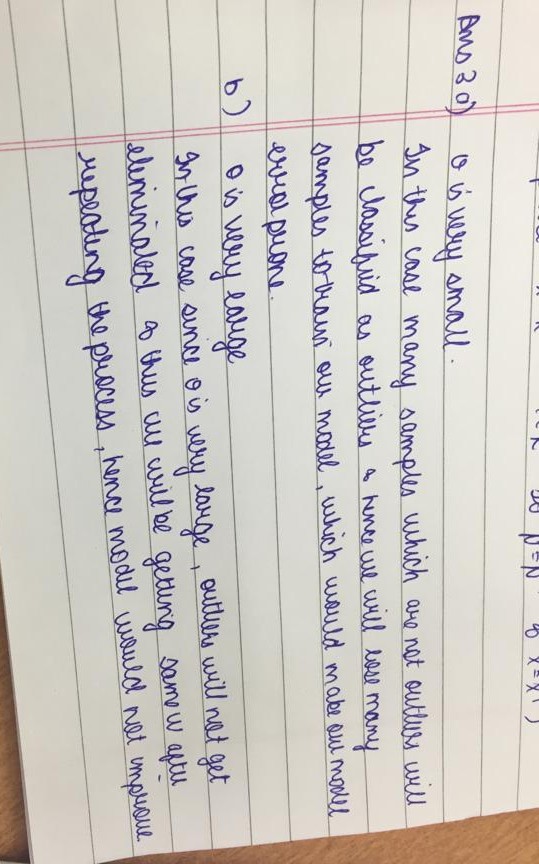 so N=N
Ans 3 a) θ is very small.
In this case many samples which are not outliers will
be classified as outliers & hence we will lose many
samples to train our model, which would make our model
error prone.
b) θ is very large
In this case since θ is very large, outliers will not get
eliminated & thus we will be getting same w after
repeating the process, hence model would not improve